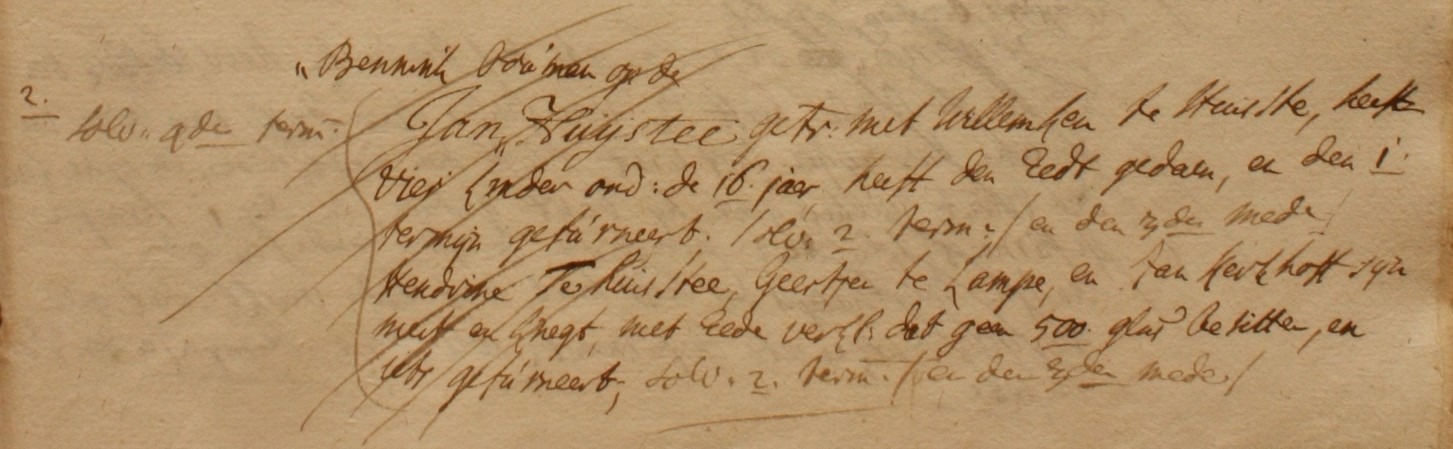 „Bennink bóúwen op de
2.
solv: 4de term:
Jan Huijstee getr: met Willemken te Huistee, heeft
vier kinder ond: de 16 jaer, heeft den Eedt gedaen, en den 1.
termijn gefúrneert. / solv. 2. term: / en den 3den mede /
Hendrine Te Huistee, Geertjen te Lampe, en Jan Kerkhoff sijn
meit en knegt, met Eede verkl: dat geen 500. glns besitten, en
gefúrneert; solv. 2. term: / en den 3den mede. /